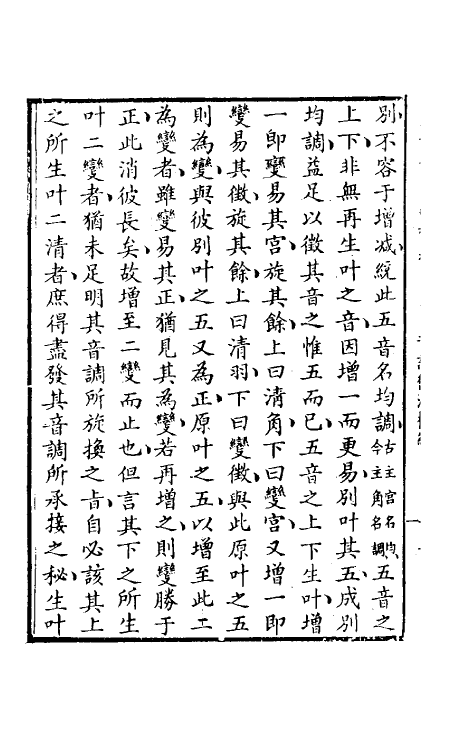 別不容于增减統此五音名均調古主宮名均今主角名調五音之
上下非無再生叶之音因增一而更易別叶其五成別
均調益足以徵其音之惟五而已五音之上下生叶增
一即變易其宮旋其餘上曰清角下曰變宮又增一即
變易其徵旋其餘上曰清羽下曰變徵與此原叶之五
則為變與彼別叶之五又為正原叶之五以增至此二
為變者雖變易其正猶見其為變若再增之則變勝于
正此消彼長矣故增至二變而止也但言其下之所生
叶二變者猶未足明其音調所旋換之㫖自必該其上
之所生叶二清者庶得盡發其音調所承接之秘生叶